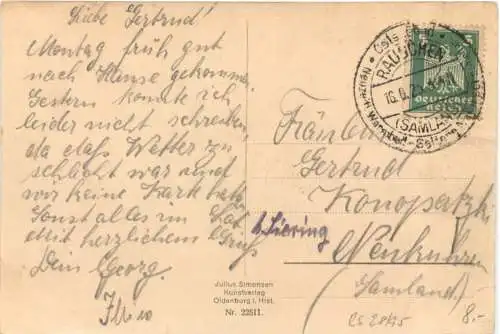 Liebe Gertrud!
Montag früh gut
nach Hause gekommen.
Gestern konnte ich
leider nicht schreiben,
da das Wetter zu
schlecht war und
wir keine Karte hatten
Sonst alles im Lot
Mit herzlichem Gruß
Dein Georg.
RAUSCHEN
(SAMLAND)
Deutsches
Fräulein
Gertrud
Konopatzki
b. Siering
Neukuhren
(Samland)
Julius Simonsen
Kunstverlag
Oldenburg i. Hlst.
Nr. 22511.
8.-